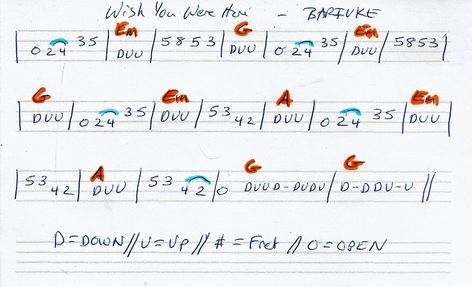 Wish You Were Here - BARIUKE
Em G Em
| 0 24 35 | DUU | 5853 | DUU | 0 24 35 | DUU | 5853 |
G Em A Em
| DUU | 0 24 35 | DUU | 53 42 | DUU | 0 24 35 | DUU |
A G G
| 53 42 | DUU | 53 42 | 0 DUUD-DUDU | D-DDU-U ||
D=DOWN // U=UP // # = Fret // O=OPEN